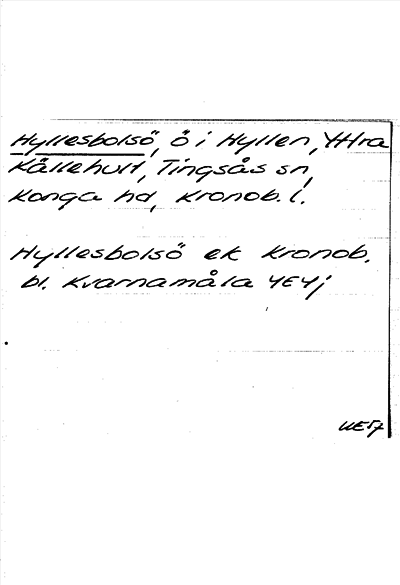 Hyllesbolsö, ö i Hyllen, Yttra
Källehult, Tingsås sn,
Konga hd, Kronob. l.
Hyllesbolsö ek Kronob.
bl. Kvarnamåla 4E4j